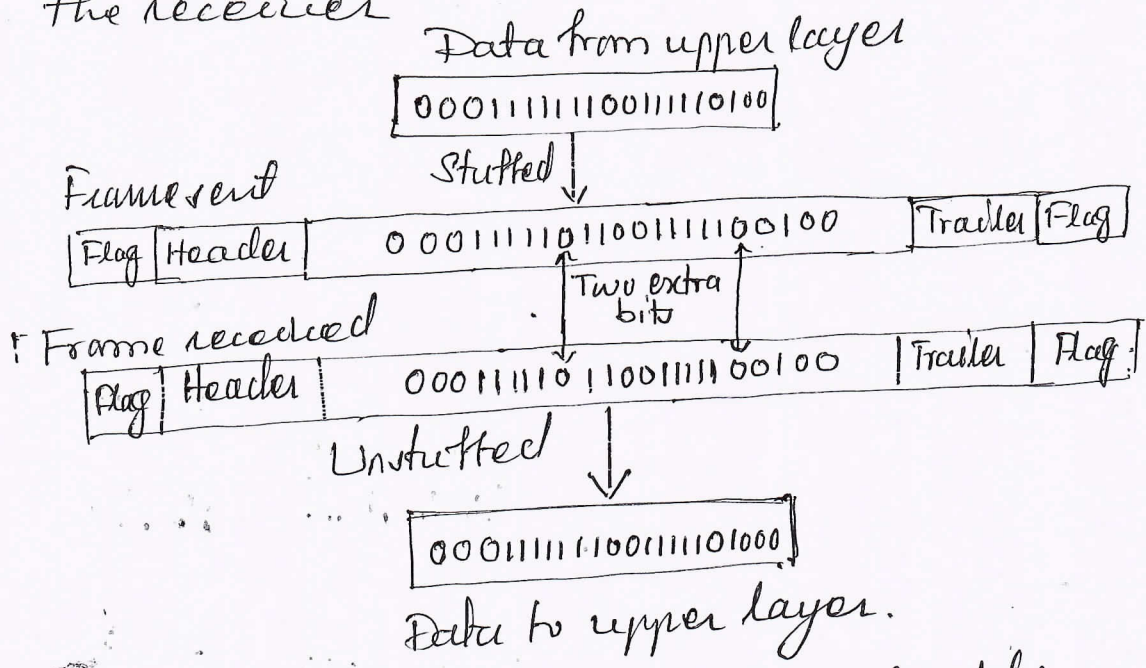 the receiver
Data from upper layer
0001111111100111110100
Stuffed
Frame sent
Flag Header 00011111011001111100100 Trailer Flag
Two extra
bits
Frame received
Flag Header 00011111011001111100100 Trailer Flag
Unstuffed
0001111111001111101000
Data to upper layer.